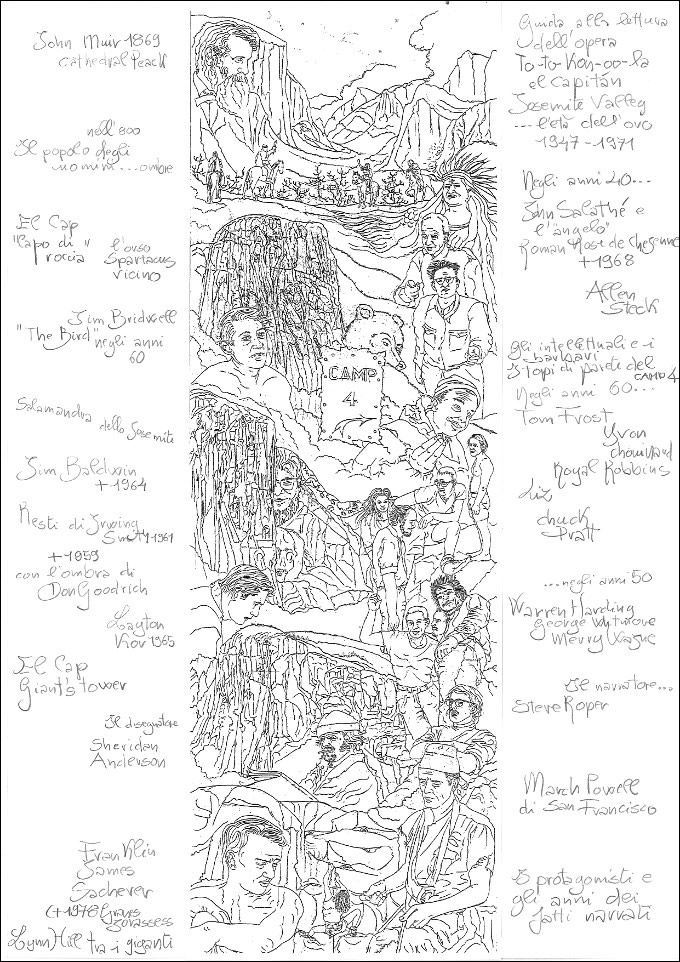 John Muir 1869
Cathedral Peack
nell'800
Il popolo degli
uomini ... ombre
El Cap
"Capo di"
roccia
l'orso
Spartacus
vicino
Jim Bridwell
"The Bird" negli anni
60
Salamandra dello Josemite
Jim Baldwin
+1964
Resti di Irwing
Smith 1961
+1959
con l'ombra di
Don Goodrich
Layton
Kor 1965
El Cap
Giant's tower
Il disegnatore
Sheridan
Anderson
Franklin
James
Sacherer
(+1978 Grans
Jorassess
Lynn Hill tra i giganti
CAMP
4
Guida alla lettura
dell'opera
To-to-kon-oo-la
el Capitán
Josemite Valley
...l'età dell'oro
1947-1971
Negli anni 40...
John Salathé e
l'"angelo"
Roman Host de
+1968
Allen
Steck
gli intellettuali e i
barbari
I topi di parete del
CAMP 4
Negli anni 60...
Tom Frost
Yvon
Chouinard
Royal Robbins
Liz
chuck
Pratt
...negli anni 50
Warren Harding
George Whitmore
Merry Wayne
Il narratore...
Steve Roper
March Powell
di San Francisco
I protagonisti e
gli anni dei
fatti narrati